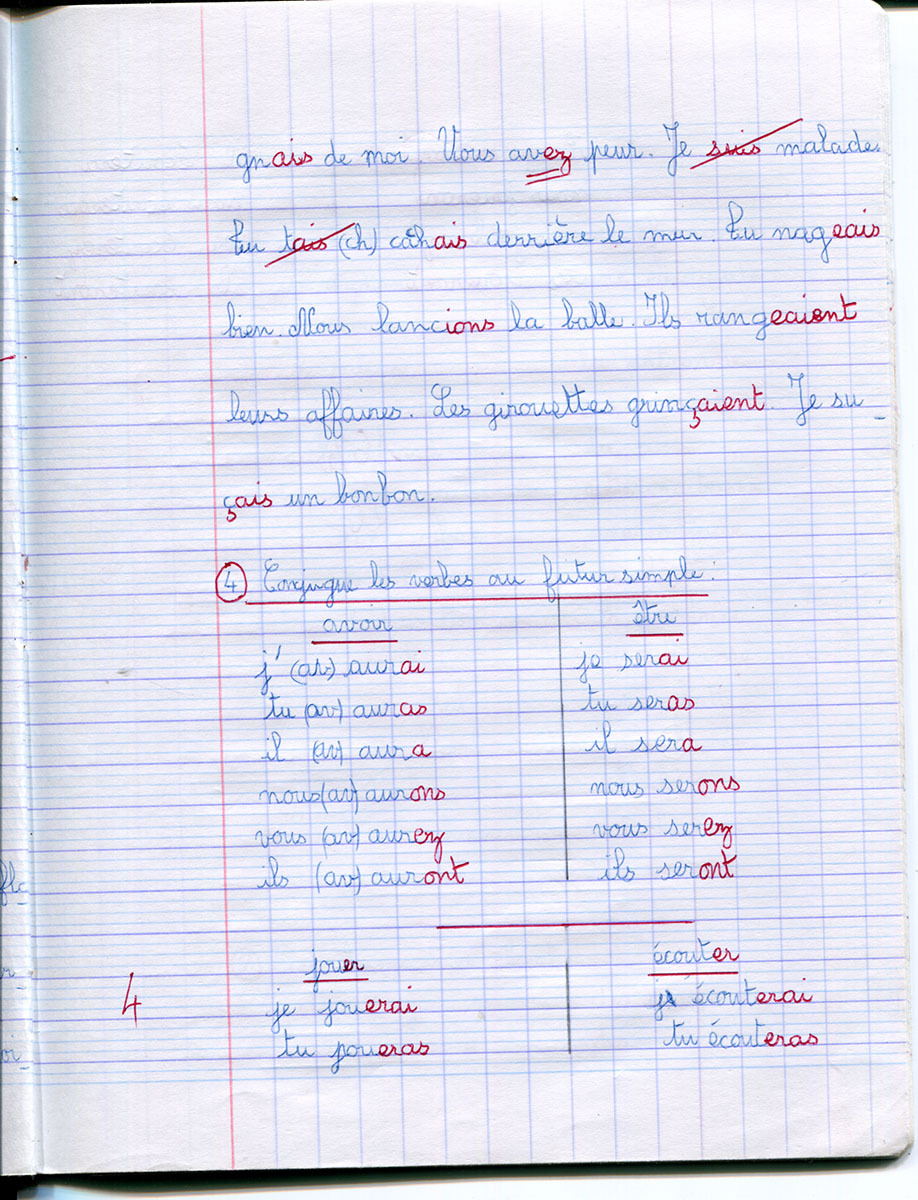 gnais de moi. Vous avez peur. Je suis malade.
Tu tais (ch) cachais derrière le mur. Tu nageais
bien. Nous lancions la balle. Ils rangeaient
leurs affaires. Les girouettes grinçaient. Je su_
çais un bonbon.
4 Conjugue les verbes au futur simple :
avoir être
j' (av) aurai je serai
tu (av) auras tu seras
il (av) aura il sera
nous (av) aurons nous serons
vous (av) aurez vous serez
ils (av) auront ils seront
jouer écouter
4 je jouerai j' écouterai
tu joueras tu écouteras